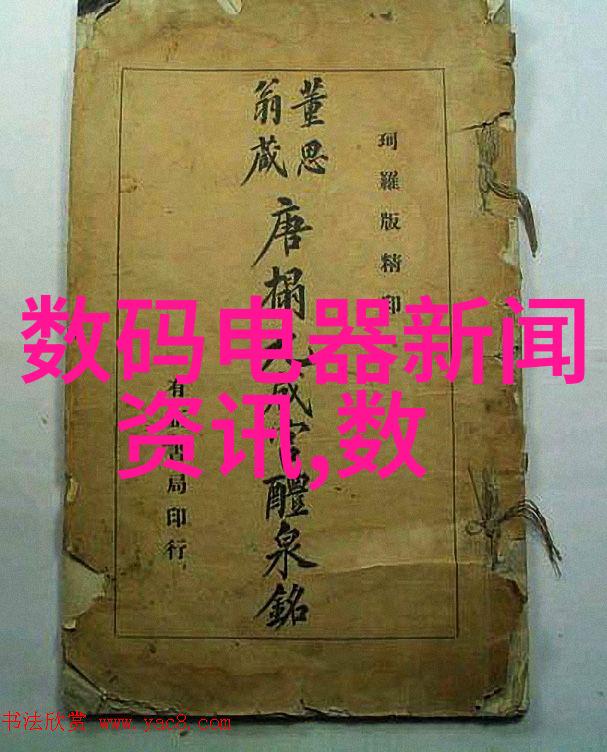 数码电器新闻
资讯,数
珂羅版精印
董思
翁藏
唐榻九成宮醴泉銘
有書局印行
书法欣赏 www.yac8.com